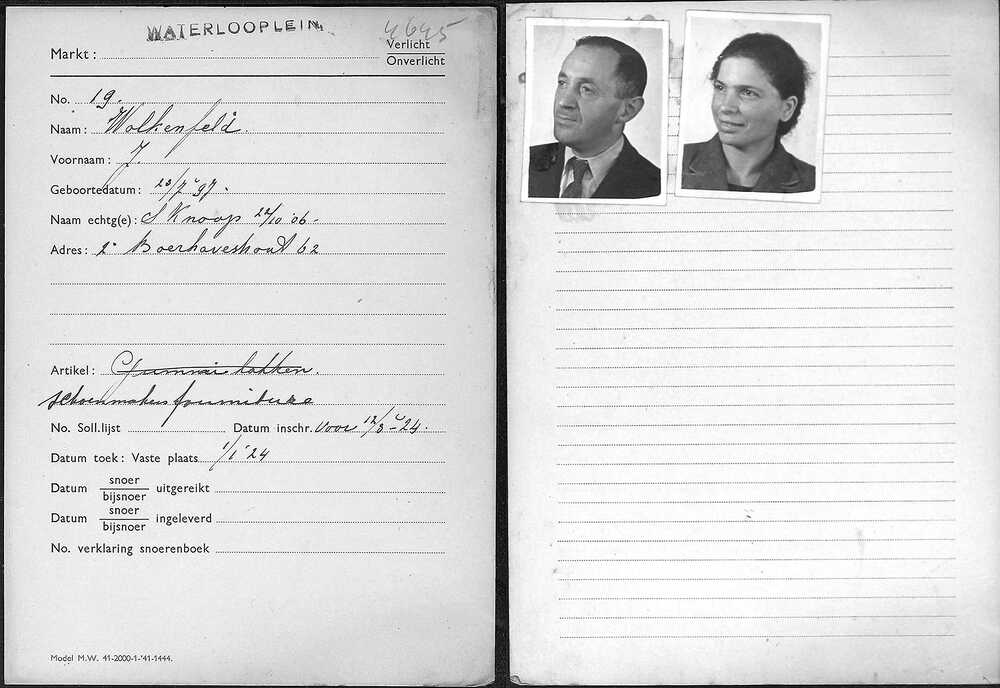 WATERLOOPLEIN.
4645
Markt:
Verlicht
Onverlicht
No. 19.
Naam: Wolkenfeld.
Voornaam: J.
Geboortedatum: 23/7 '97.
Naam echtg(e): S Knoop 22/10 '06 -
Adres: Boerhavestraat 62
Artikel: Gummi hakken.
schoenmakers fournituren
No. Soll.lijst Datum inschr. voor 12/8 - 24.
Datum toek: Vaste plaats 1/1 '24
Datum snoer/bijsnoer uitgereikt
Datum snoer/bijsnoer ingeleverd
No. verklaring snoerenboek
Model M.W. 41-2000-1-'41-1444.